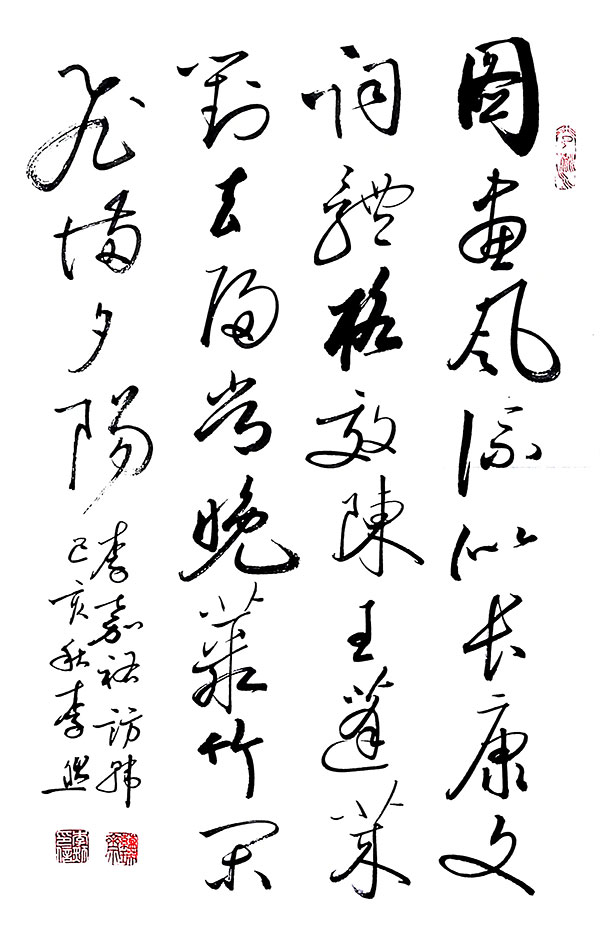 圖畫風流似長康文
詞體格效陳王蓬萊
對去歸常晚叢竹閑
飛滿夕陽
李嘉祐訪韓
己亥秋李